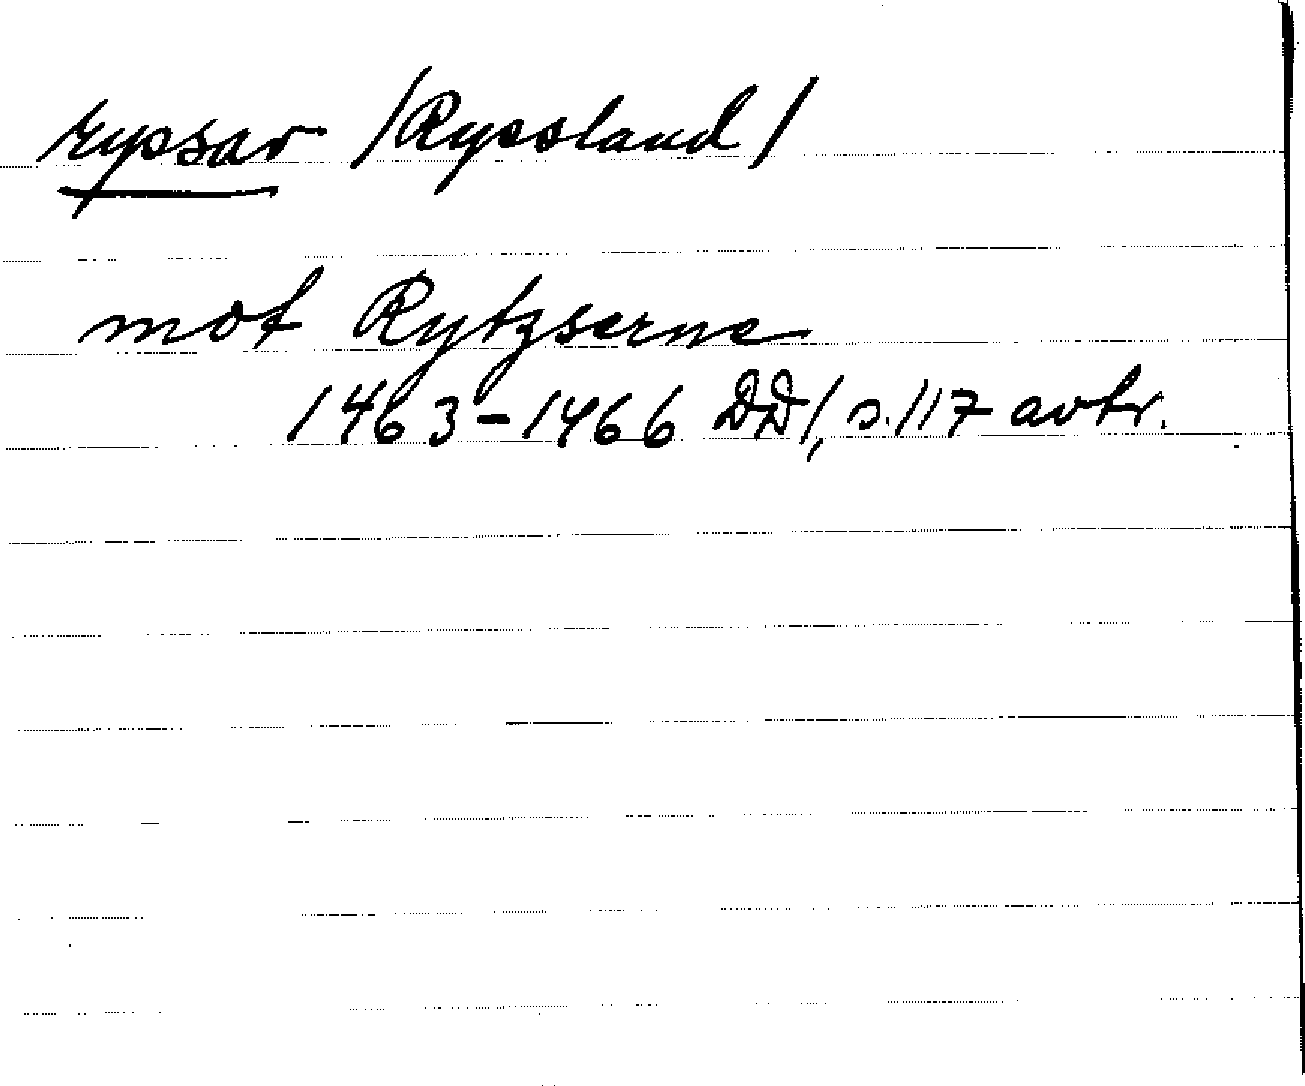 ryssar /Ryssland/
mot Rytzserne
1463-1466 DD1, s. 117 avtr.